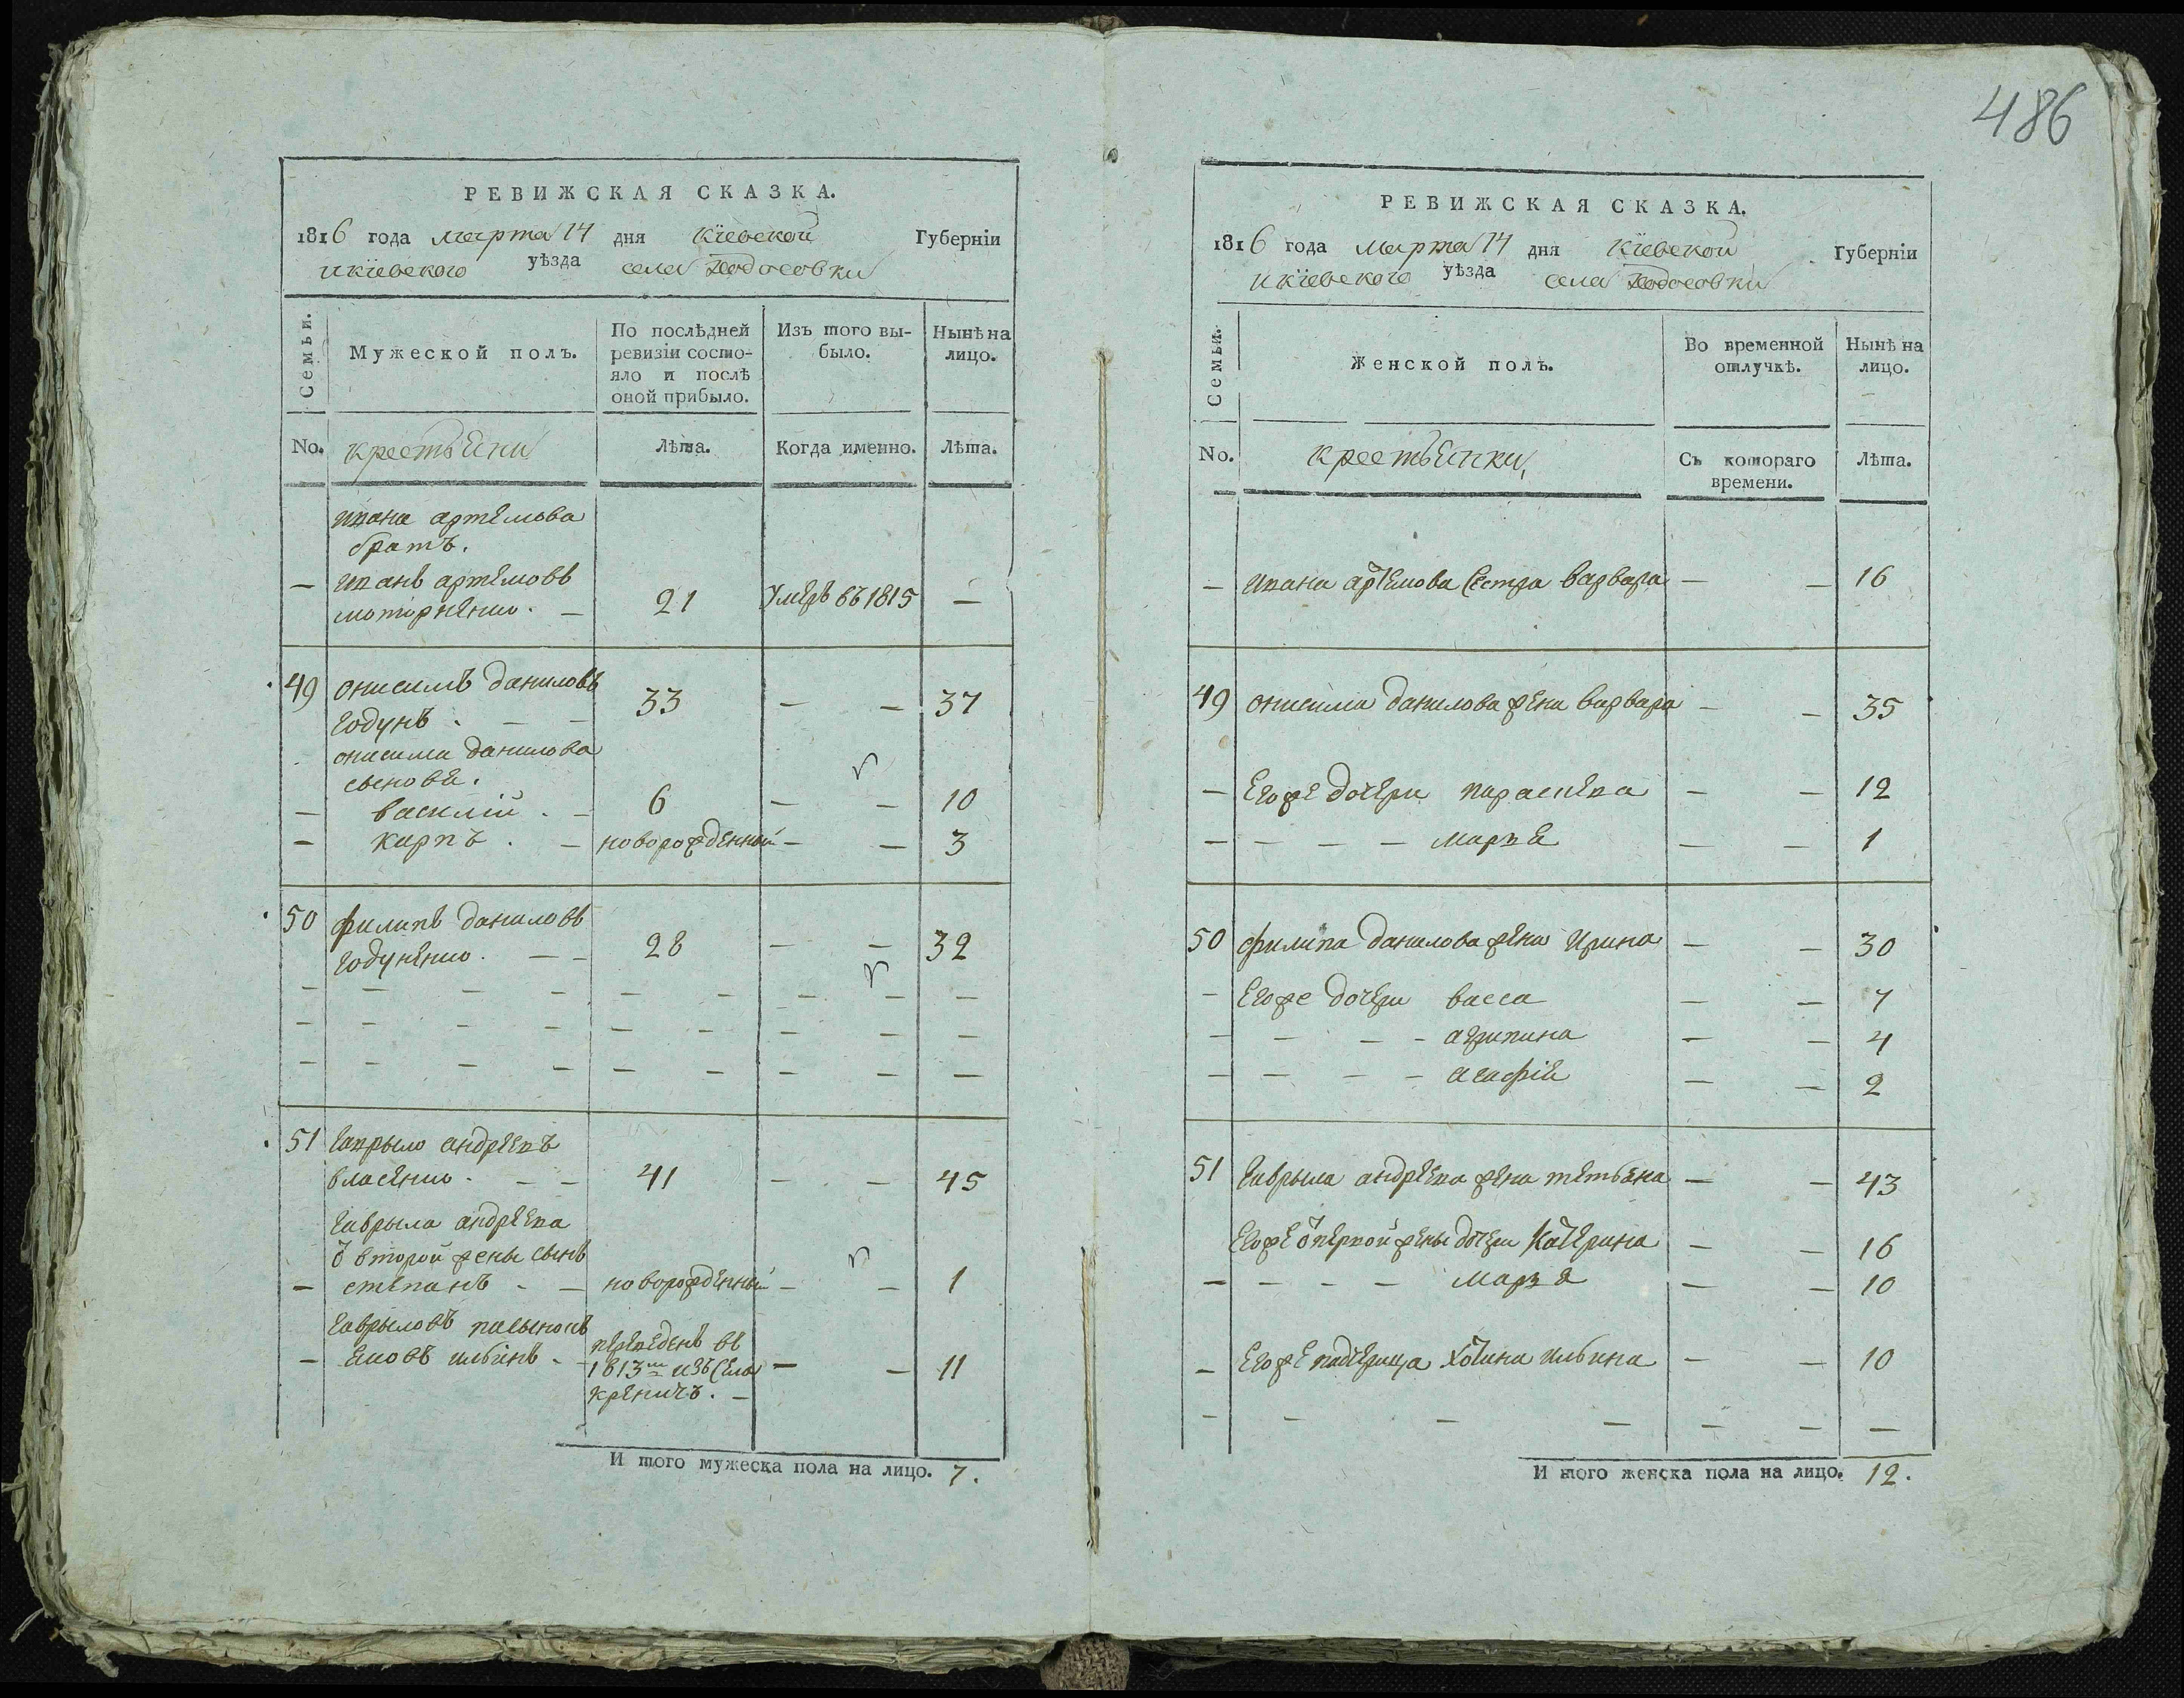 486
РЕВИЖСКАЯ СКАЗКА.
1816 года марта 14 дня Кіевской Губерніи
икіевского уѣзда села Ходосовки
Семьи.
Мужеской полъ.
По послѣдней
ревизіи состо-
яло и послѣ
оной прибыло.
Изъ того вы-
было.
Нынѣ на
лицо.
No. крестьяни Лѣта. Когда именно. Лѣта.
ивана артемова
братъ.
— иванъ артемовъ
моторненко. — 21 Умеръ въ 1815 —
49 онисимъ даниловъ
годунъ. — — 33 — — 37
онисима данилова
сыновя.
— василій. — 6 — — 10
— карпъ. — новорожденный — — 3
50 филипъ даниловъ
годуненко. — — 28 — — 32
— — — — — — — — —
— — — — — — — — —
— — — — — — — — —
51 гаврыло андреевъ
власенко. — — 41 — — 45
гаврыла андреева
ѿ второй жены сынъ
— степанъ — — новорожденный — — 1
гаврыловъ пасынокъ
— яковъ ильинъ. — переведенъ въ
1813м изъ села — — 11
креничъ. —
И того мужеска пола на лицо. 7.
РЕВИЖСКАЯ СКАЗКА.
1816 года марта 14 дня Кіевской Губерніи
икіевского уѣзда села Ходосовки
Семьи.
Женской полъ.
Во временной
отлучкѣ.
Нынѣ на
лицо.
No. крестьянки, Съ котораго
времени. Лѣта.
— ивана артемова сестра варвара — — 16
49 онисима данилова жена варвара — — 35
— егоже дочери параскева — — 12
— — — — марья — — 1
50 филипа данилова жена ирина — — 30
— егоже дочери васса — — 7
— — — — агрипина — — 4
— — — — агафія — — 2
51 гаврыла андреева жена тетьяна — — 43
егоже ѿ первой жены дочери катерина — — 16
— — — — марья — — 10
— егоже падчерица хотина ильина — — 10
— — — — — — —
И того женска пола на лицо. 12.